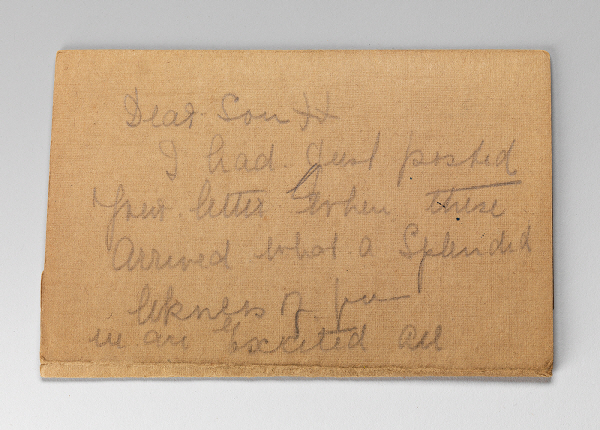 Dear Son XX
I had Just posted
Your letter When these
Arrived what a Splendid
likness of you
we are Excited All